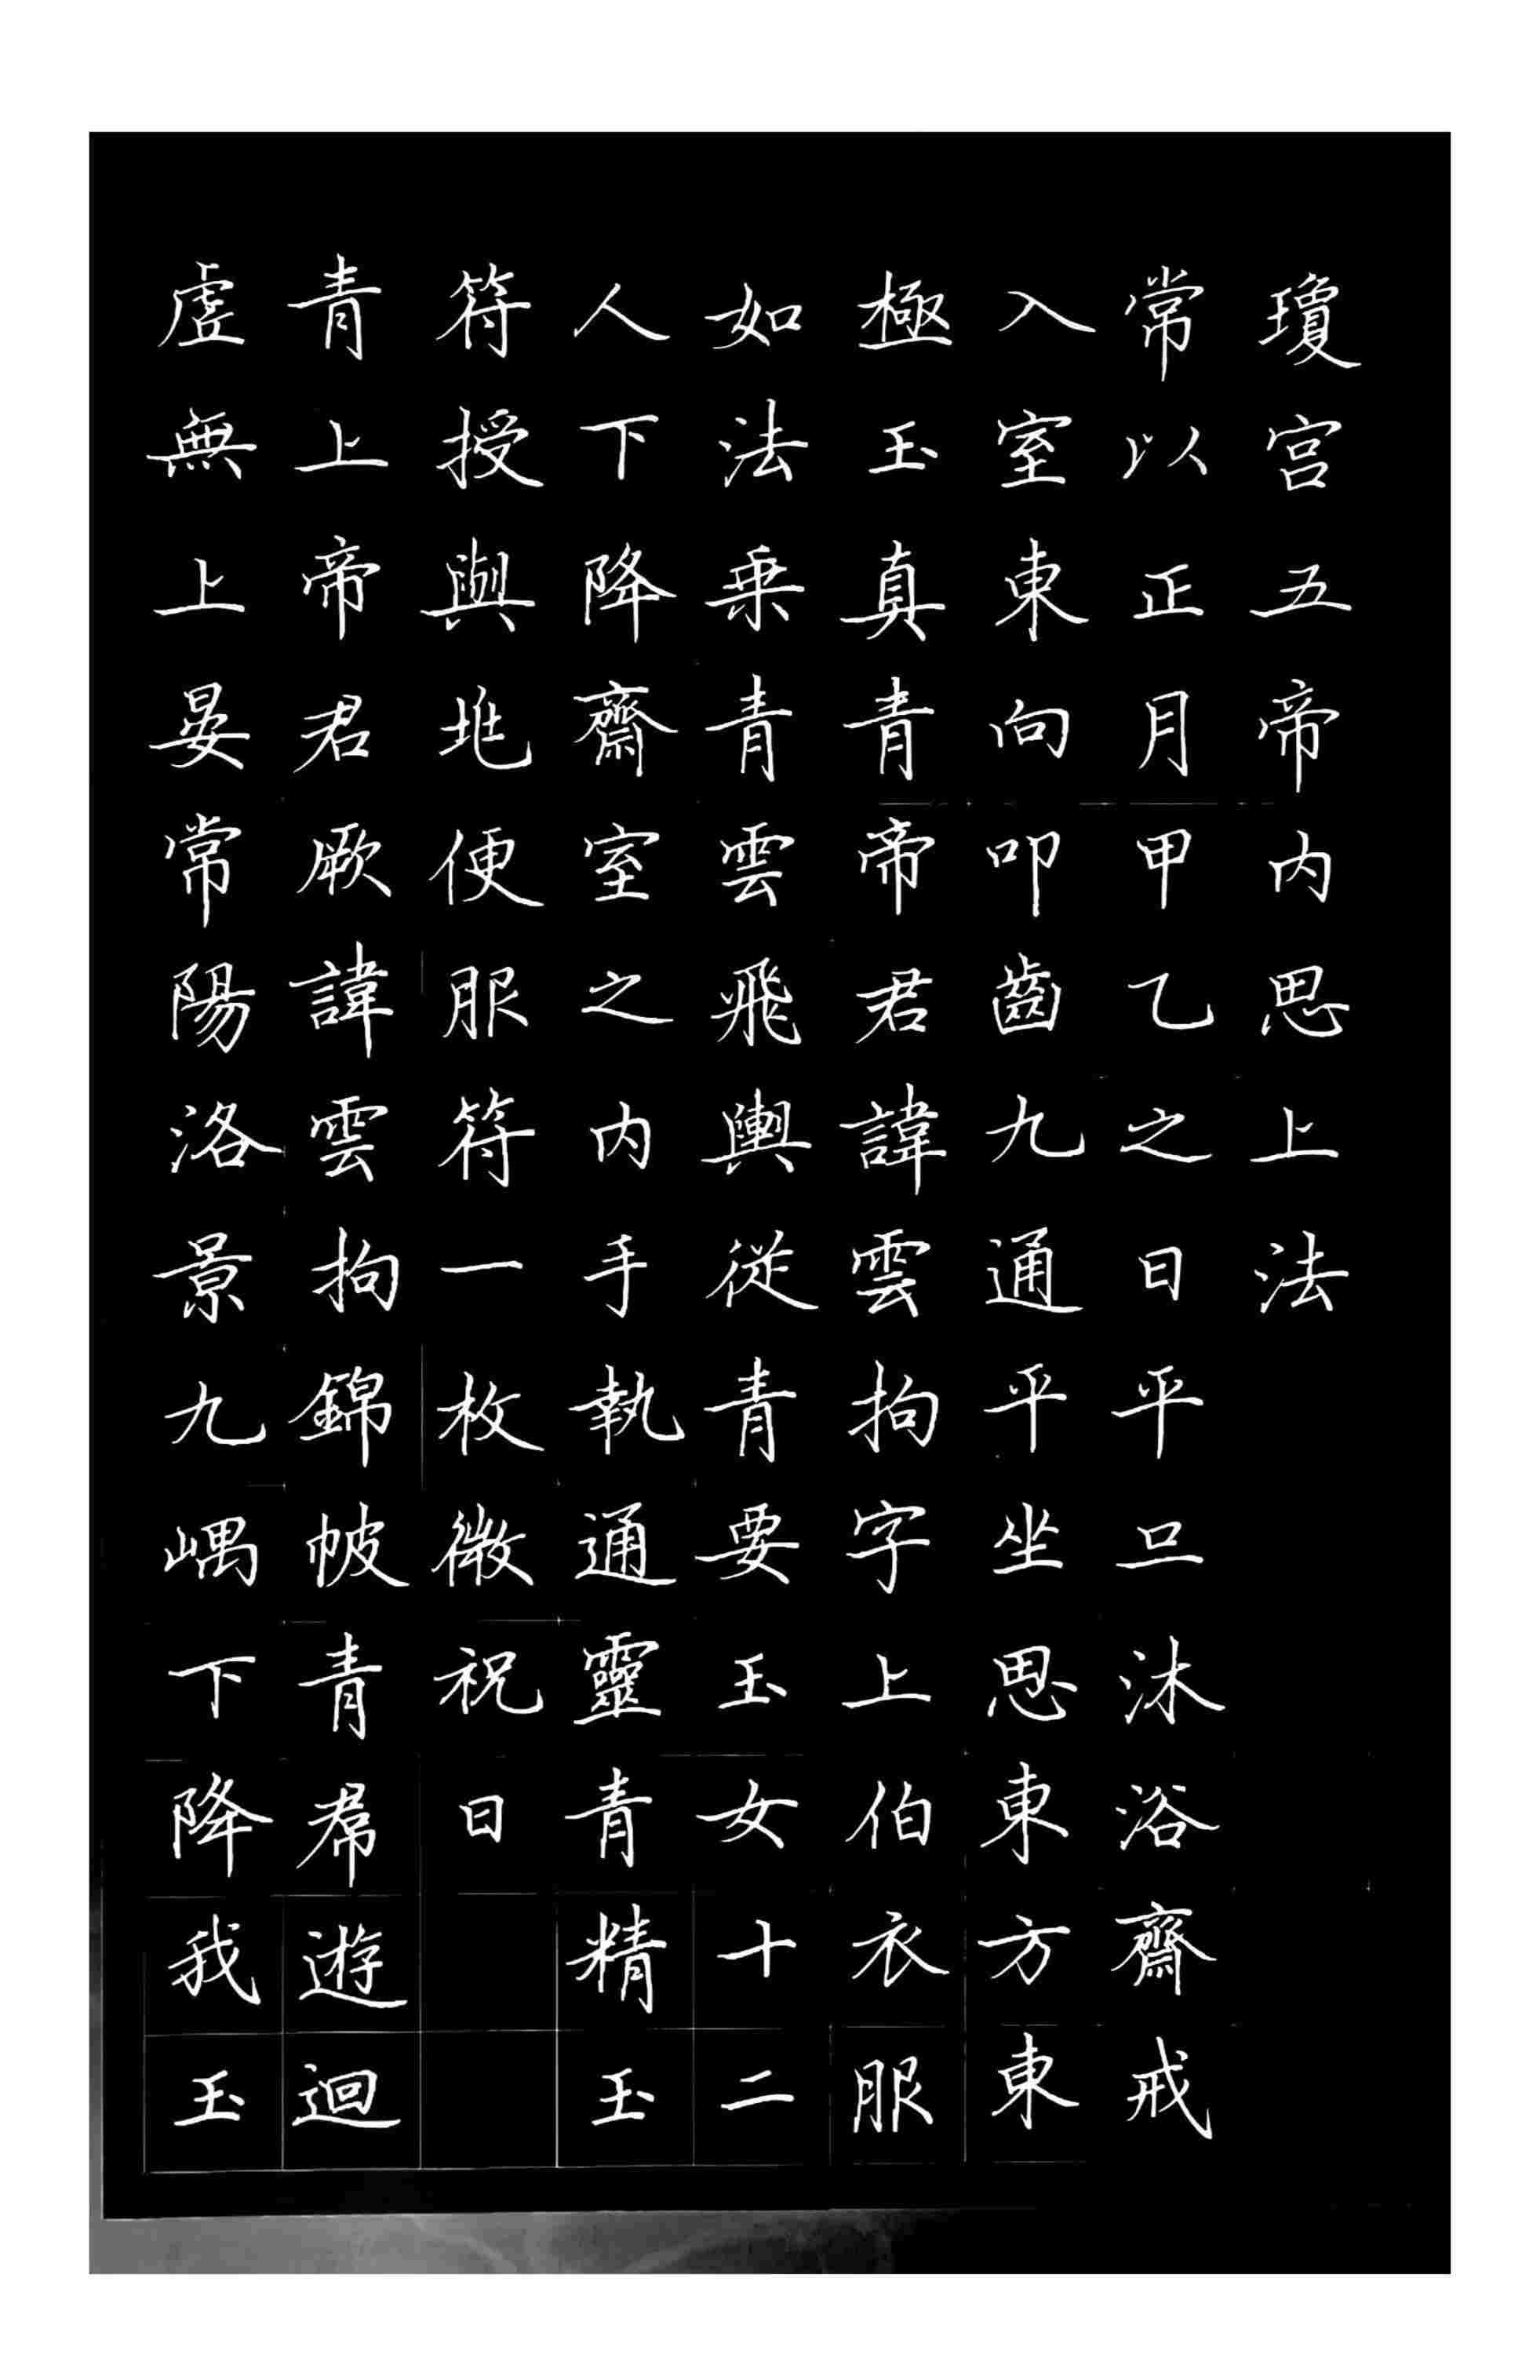 瓊宮五帝内思上法
常以正月甲乙之日平旦沐浴齋戒
入室東向叩齒九通平坐思東方東
極玉真青帝君諱雲拘字上伯衣服
如法乗青雲飛輿從青要玉女十二
人下降齋室之内手執通靈青精玉
符授與兆便服符一枚微祝曰
青上帝君厥諱雲拘錦帔青帬遊迴
虛無上晏常陽洛景九嵎下降我玉